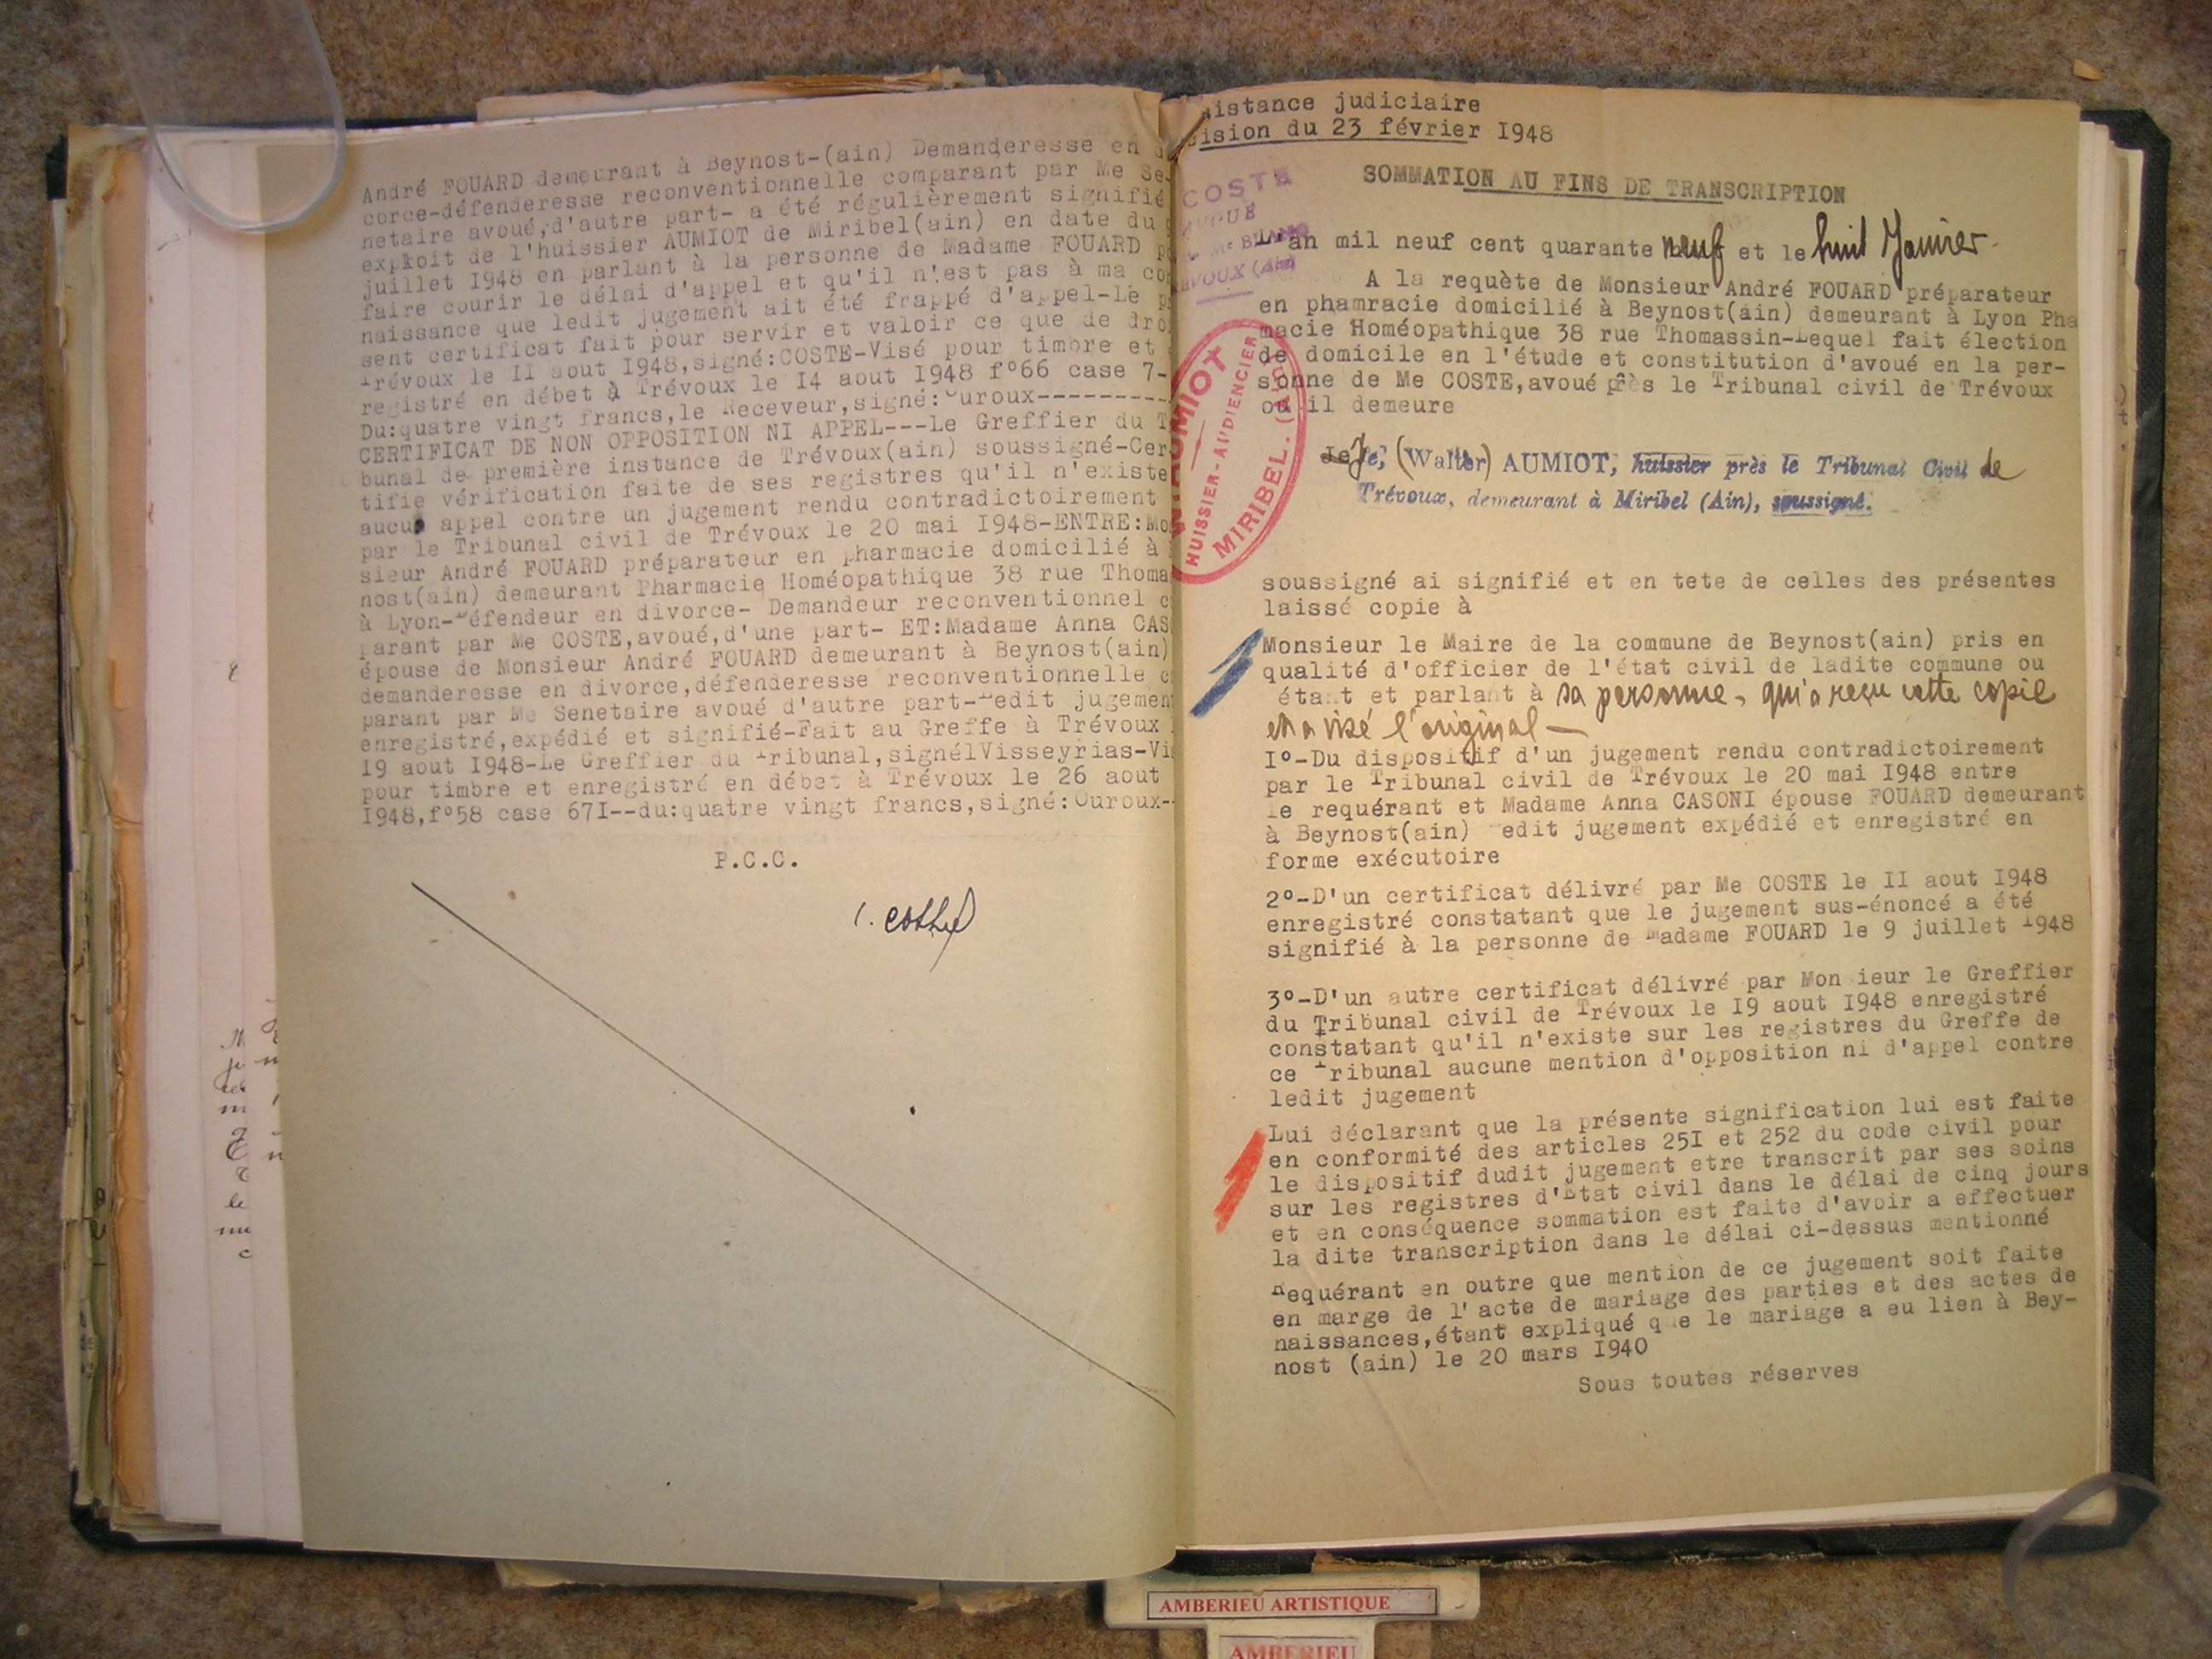 André FOUARD demeurant à Beynost-(ain) Demanderesse en
corce-défenderesse reconventionnelle comparant par Me Se
netaire avoué,d'autre part- a été régulièrement signifié
expkoit de l'huissier AUMIOT de Miribel(ain) en date du
juillet 1948 en parlant à la personne de Madame FOUARD
faire courir le délai d'appel et qu'il n'est pas à ma co
naissance que ledit jugement ait été frappé d'appel-Le p
sent certificat fait pour servir et valoir ce que de dro
Trévoux le II aout I948,signé:COSTE-Visé pour timbre et
registré en débet à Trévoux le I4 aout I948 f°66 case 7-
Du:quatre vingt francs,le Receveur,signé:Ouroux----------
CERTIFICAT DE NON OPPOSITION NI APPEL---Le Greffier du T
bunal de première instance de Trévoux(ain) soussigné-Cer
tifie vérification faite de ses registres qu'il n'existe
aucun appel contre un jugement rendu contradictoirement
par le Tribunal civil de Trévoux le 20 mai I948-ENTRE:Mo
sieur André FOUARD préparateur en pharmacie domicilié à
nost(ain) demeurant Pharmacie Homéopathique 38 rue Thoma
à Lyon-Défendeur en divorce- Demandeur reconventionnel c
parant par Me COSTE,avoué,d'une part- ET:Madame Anna CAS
épouse de Monsieur André FOUARD demeurant à Beynost(ain)
demanderesse en divorce,défenderesse reconventionnelle c
parant par Me Senetaire avoué d'autre part-Ledit jugemen
enregistré,expédié et signifié-Fait au Greffe à Trévoux
I9 aout I948-Le Greffier du Tribunal,signélVisseyrias-Vi
pour timbre et enregistré en débet à Trévoux le 26 aout
I948,f°58 case 67I--du:quatre vingt francs,signé:Ouroux--
P.C.C.
coste
istance judiciaire
ision du 23 février I948
SOMMATION AU FINS DE TRANSCRIPTION
COSTE
L'an mil neuf cent quarante neuf et le huit Janvier
A la requète de Monsieur André FOUARD préparateur
en phamracie domicilié à Beynost(ain) demeurant à Lyon Pha
macie Homéopathique 38 rue Thomassin-Lequel fait élection
de domicile en l'étude et constitution d'avoué en la per-
sonne de Me COSTE,avoué près le Tribunal civil de Trévoux
ou il demeure
AUMIOT
HUISSIER-AUDIENCIER
MIRIBEL. (AIN)
Je, (Walter) AUMIOT, huissier près le Tribunal Civil de
Trévoux, demeurant à Miribel (Ain), soussigné.
soussigné ai signifié et en tete de celles des présentes
laissé copie à
Monsieur le Maire de la commune de Beynost(ain) pris en
qualité d'officier de l'état civil de ladite commune ou
étant et parlant à sa personne, qui a reçu cette copie
et a visé l'original —
I°-Du dispositif d'un jugement rendu contradictoirement
par le Tribunal civil de Trévoux le 20 mai I948 entre
le requérant et Madame Anna CASONI épouse FOUARD demeurant
à Beynost(ain) Ledit jugement expédié et enregistré en
forme exécutoire
2°-D'un certificat délivré par Me COSTE le II aout I948
enregistré constatant que le jugement sus-énoncé a été
signifié à la personne de Madame FOUARD le 9 juillet I948
3°-D'un autre certificat délivré par Monsieur le Greffier
du Tribunal civil de Trévoux le I9 aout I948 enregistré
constatant qu'il n'existe sur les registres du Greffe de
ce Tribunal aucune mention d'opposition ni d'appel contre
ledit jugement
Lui déclarant que la présente signification lui est faite
en conformité des articles 25I et 252 du code civil pour
le dispositif dudit jugement etre transcrit par ses soins
sur les registres d'Etat civil dans le délai de cinq jours
et en conséquence sommation est faite d'avoir a effectuer
la dite transcription dans le délai ci-dessus mentionné
Requérant en outre que mention de ce jugement soit faite
en marge de l'acte de mariage des parties et des actes de
naissances,étant expliqué que le mariage a eu lien à Bey-
nost (ain) le 20 mars I940
Sous toutes réserves
AMBERIEU ARTISTIQUE
AMBERIEU